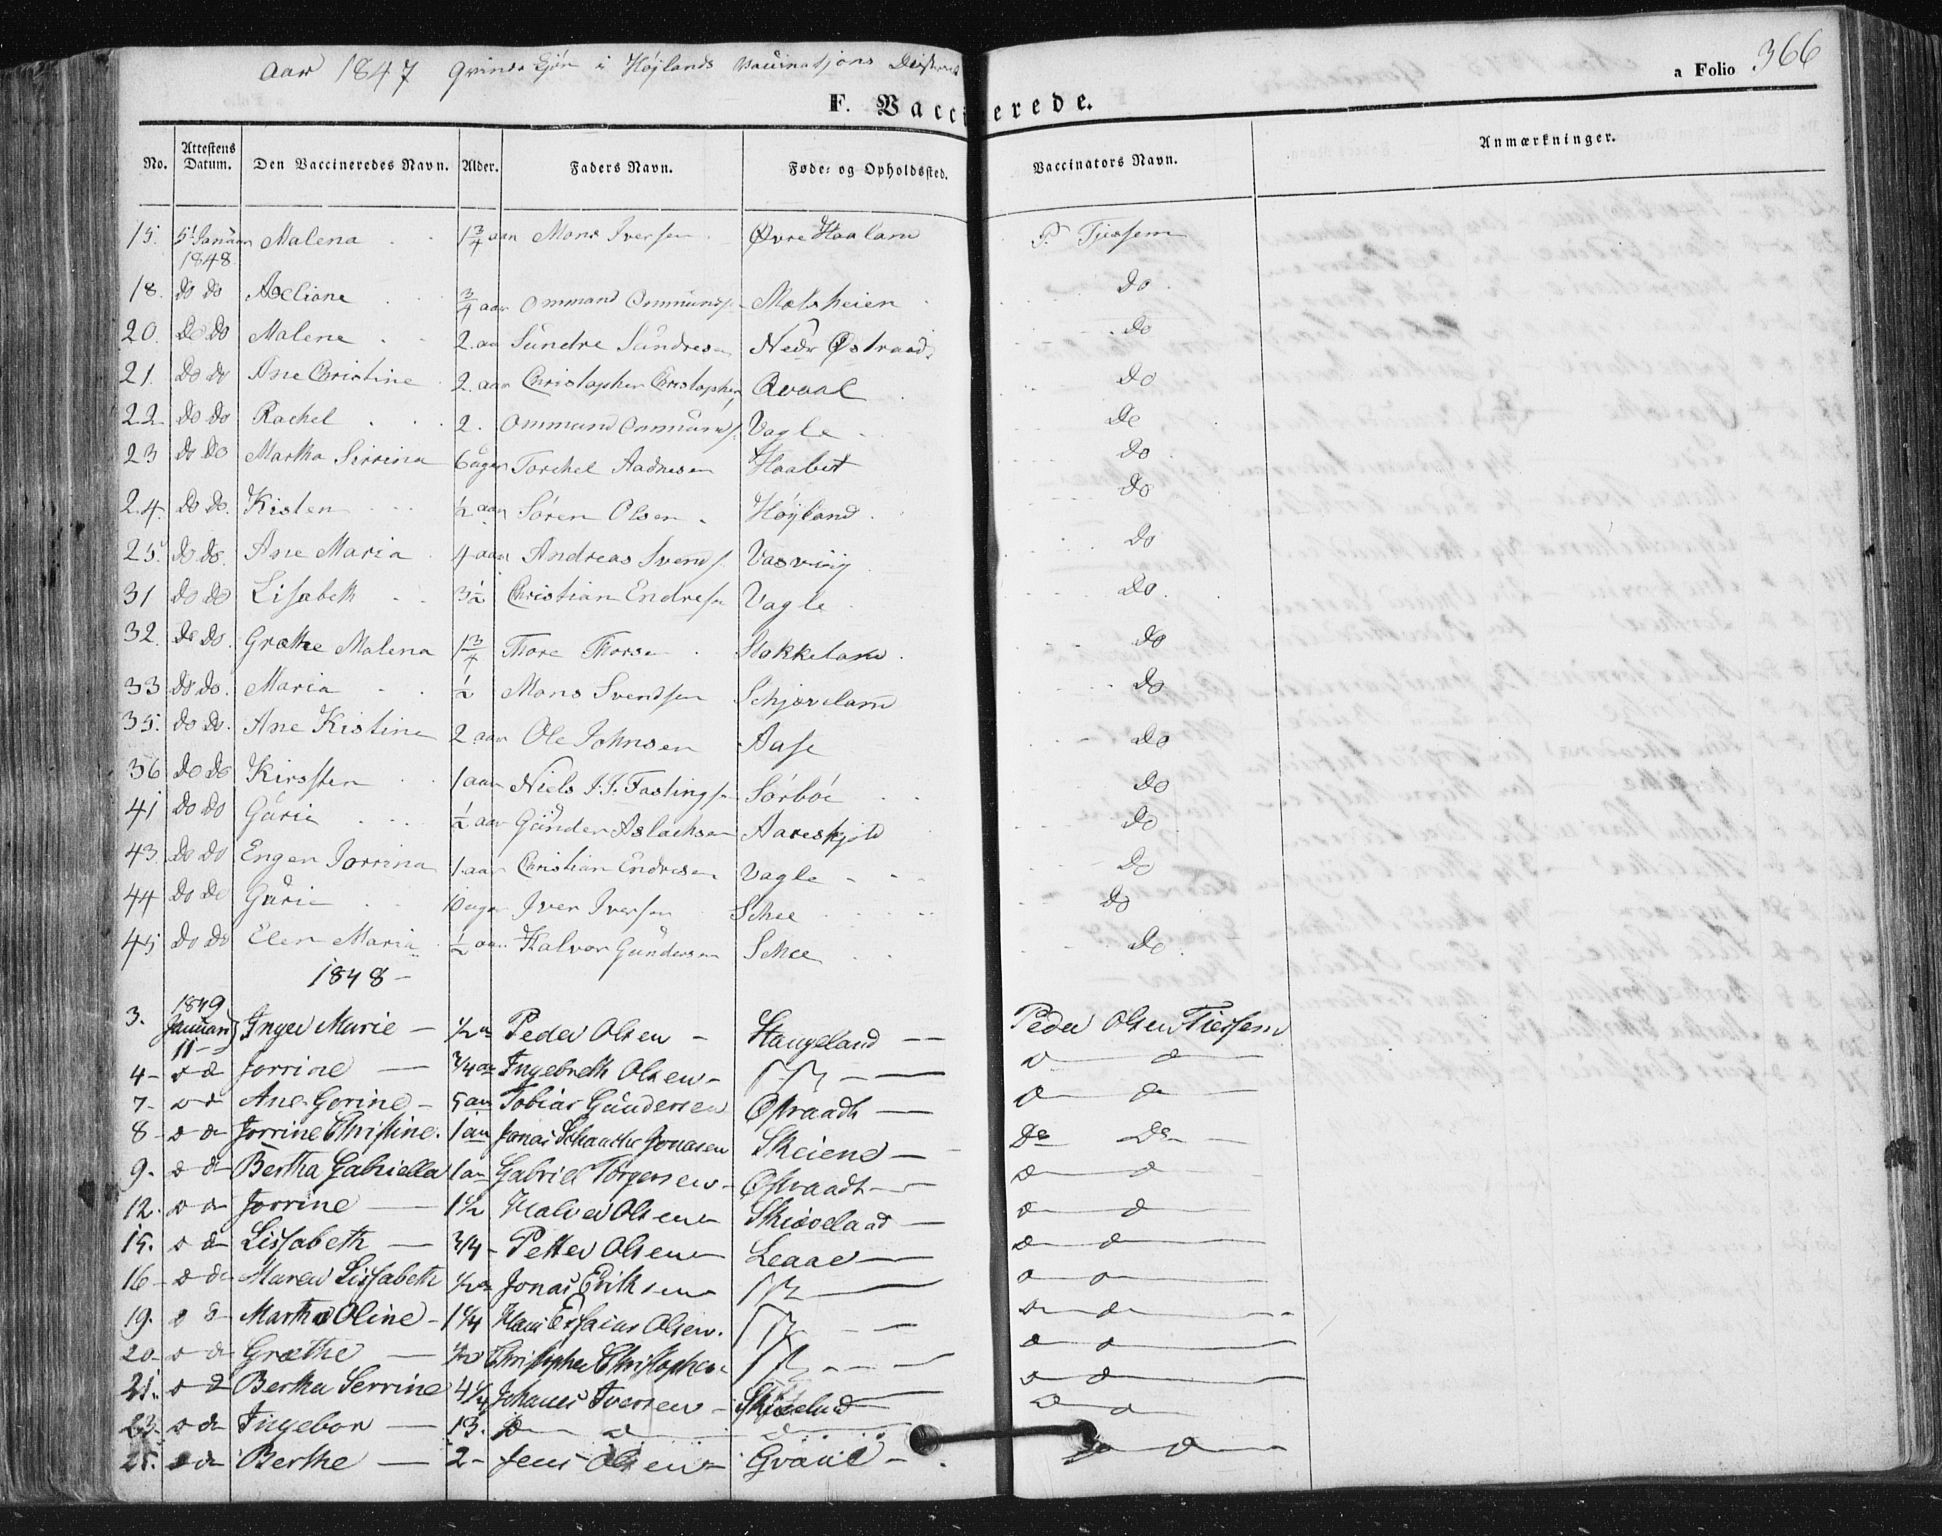 Aar 1847 Qvinde Kjön i Höjlands Vaccinasjons District
a Folio 366
F. Vaccinerede.
No. Attestens Datum. Den Vaccineredes Navn. Alder. Faders Navn. Føde- og Opholdssted. Vaccinators Navn. Anmærkninger.
15. 5 Januar 1848 Malena 1 3/4 aar Mons Iversen Øvre Haaland P. Tjessem
18. do do Axeliane 3/4 aar Ommund Ommunds. Malsheien do
20. do do Malene 2. aar Sündre Sündresen Nedr Østraad do
21. do do Ane Christine 2. aar Christopher Christophers Qvaal do
22 do do Rachel 2. Ommund Ommunds. Vagle do
23 do do Martha Serrina 6 uger Torchel Aadnesen Haabet do
24. do do. Kisten 1/2 aar Sören Olsen Höyland do
25 do do. Ane Maria 4 aar Andreas Svends. Vasviig do
31 do do Lisabeth 3 1/2 Christian Endresen Vagle do.
32. do do. Græthe Malena 1 3/4 Thore Thorsen Stokkeland do
33 do do. Maria 1/2 Mons Svendsen Schjøveland do
35. do do. Ane Kistine 2 aar Ole Johnsen Aase do
36 do do Kirssten 1 aar Niels J.S. Fastings Sörböe do
41 do do Güria 1/2 aar Günder Aslachsen Aareskjold do
43. do do Enger Jorrina 1. aar Christian Endresen Vagle do
44 do do Güri 10 uger Iver Iversen Schee do
45 do do Elen Maria 1/2 aar Halvor Gündersen Schee do
1848 -
3. 1849 Januari 11 Inger Marie 1/2 a Peder Olsen Haugeland Peder Olsen Tiessem
4 - do Jorrine 3/4 aar Ingebreth Olsen do do
7 - do Ane Gorine 5 aar Tobias Gündersen Østraadt do do
8 - do Jorrine Christine 1 aar Jonas Schanche Jonasen Skeiene do do
9. do Bertha Gabriella 1 aar Gabriel Torgersen Østraadt do do
12. do Jorrine 1 1/2 Halver Olsen Skiøvelaad do do
15. do Lissabeth 3/4 Petter Olsen Leaae do do
16 do Maren Lissabeth 1/2 a Jonas Eriksen do do
19. do Martha Oline 1 1/4 Hans Essaias Olsen do do
20 do Græthe 1/2 Christopher Christophers do do
21. do Bertha Serrine 4 1/4 Johanes Iversen do do
23. do Ingebor 13. do do do do
25. do Berthe 2 Jens Olsen Qvaale do do